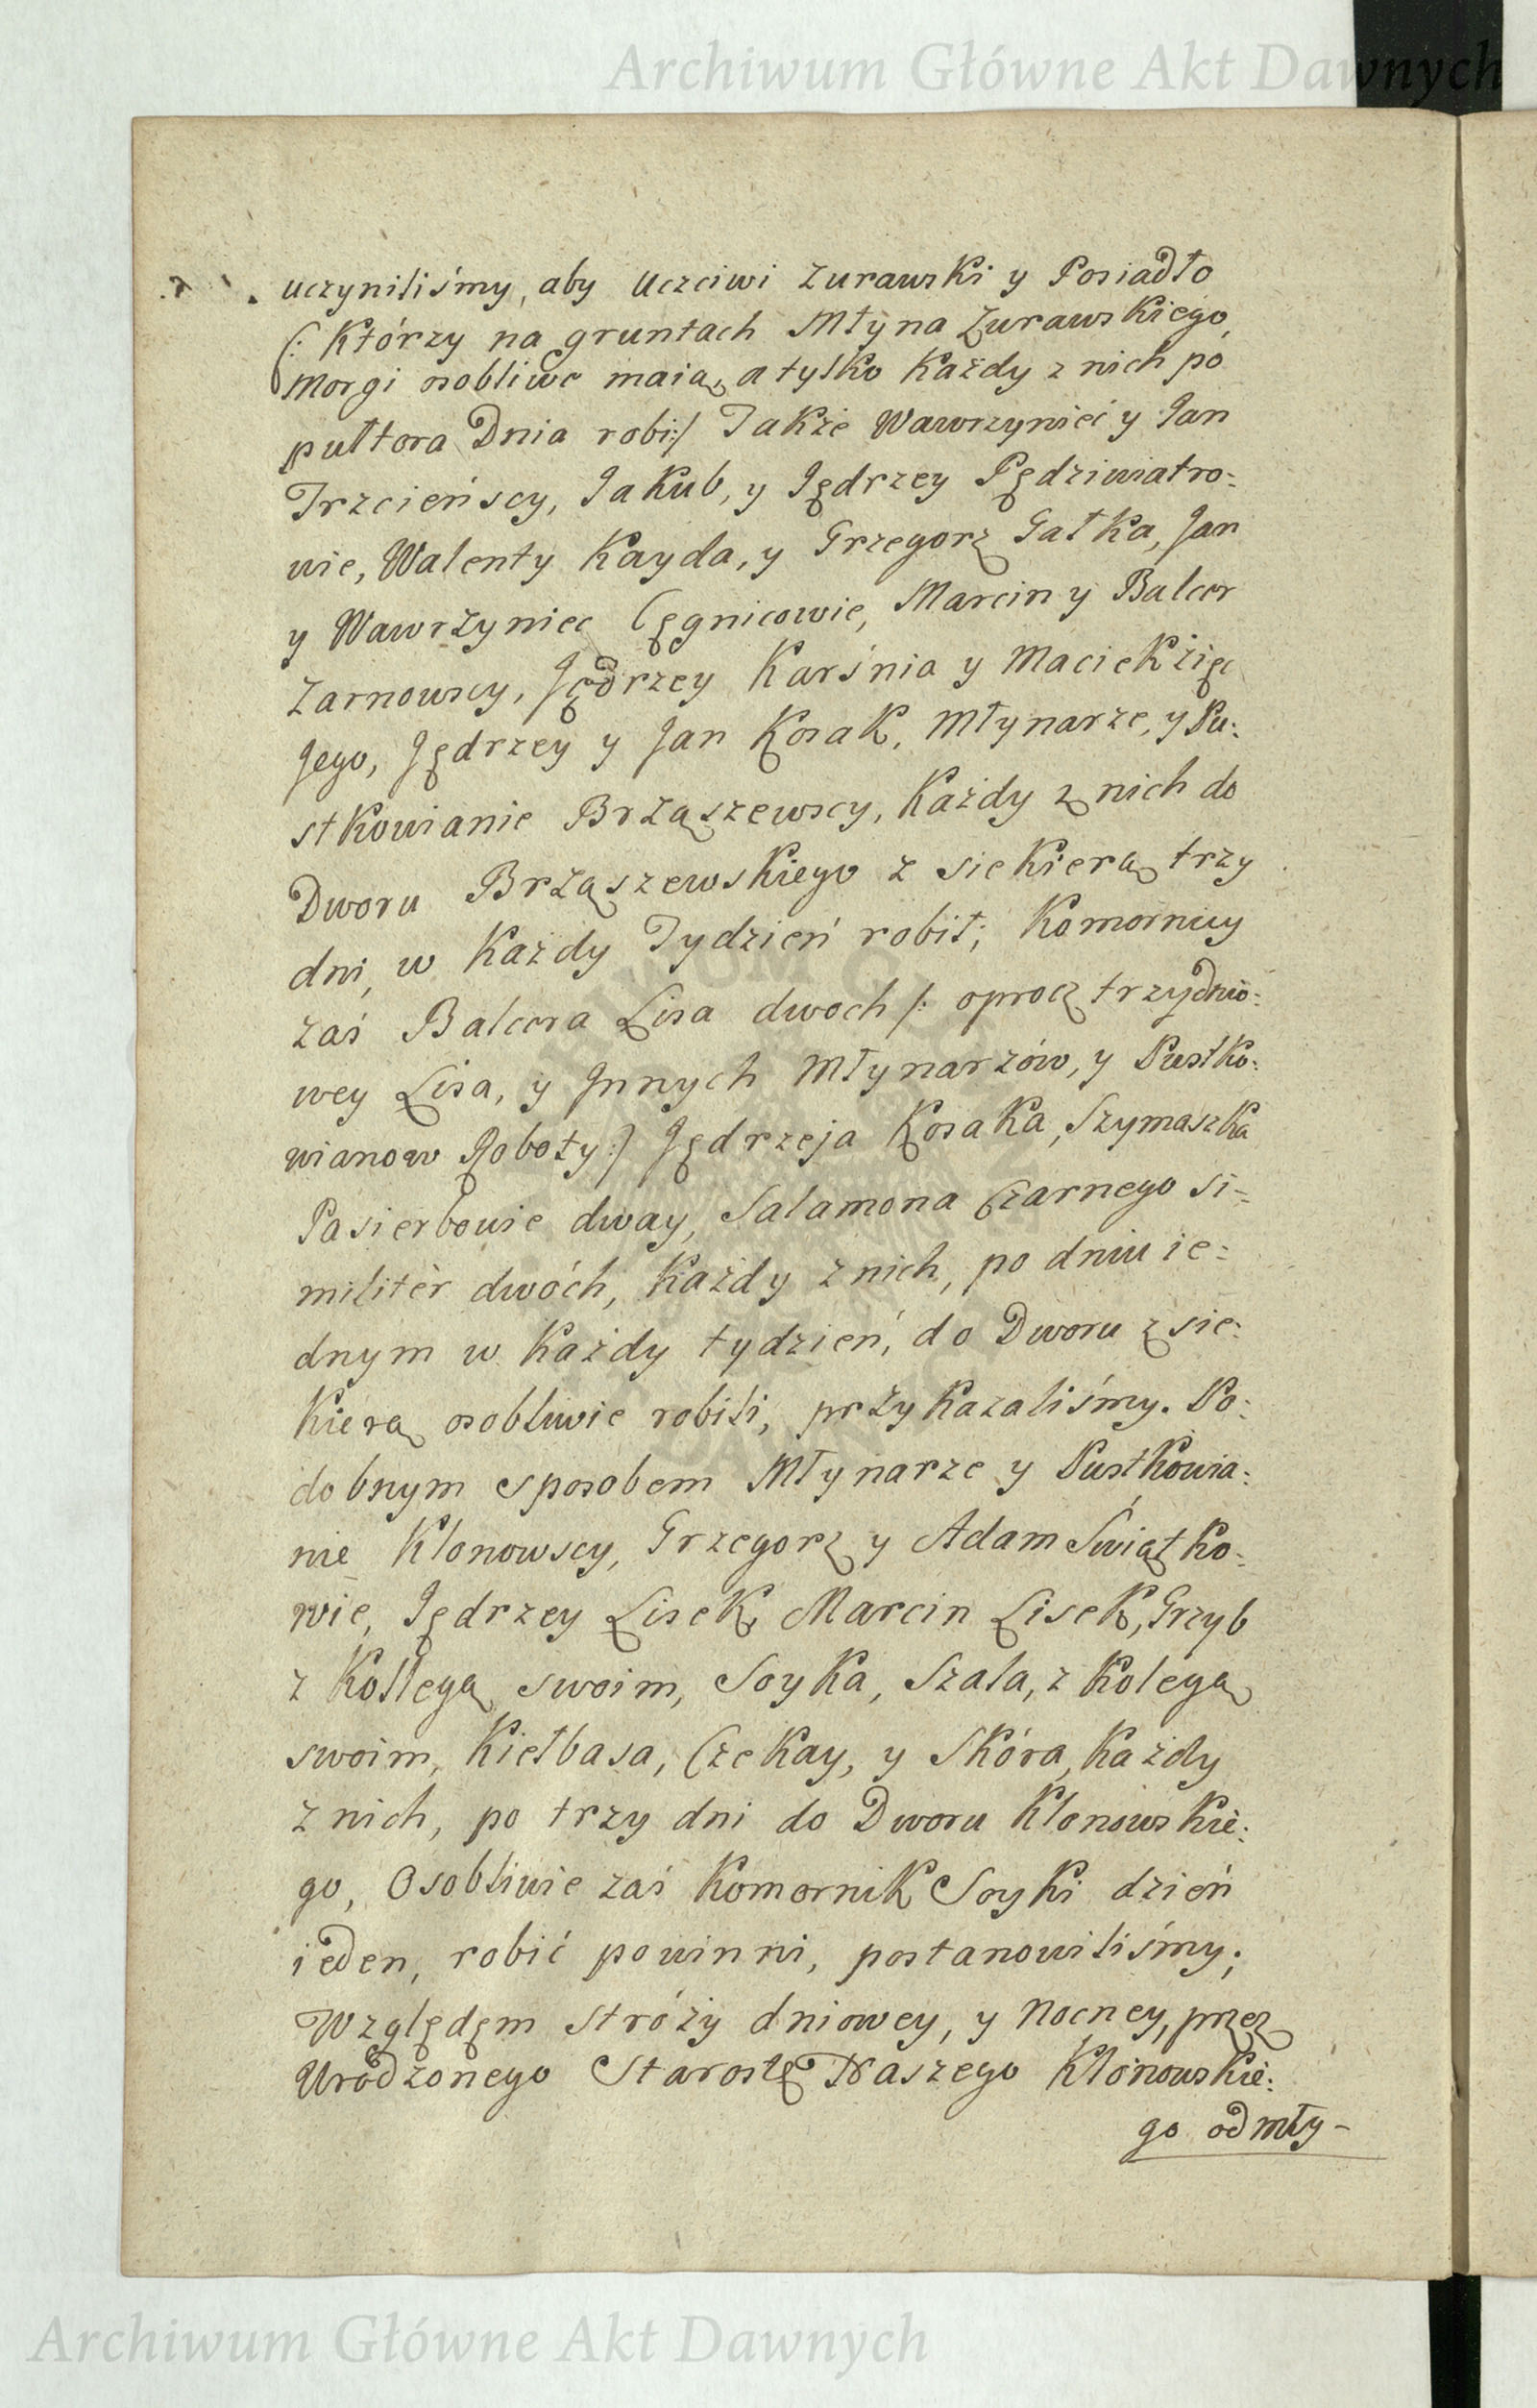 Archiwum Główne Akt Dawnych
uczyniliśmy, aby Uczciwi Zurawski y Posiadło
(: Którzy na gruntach Młyna Zurawskiego,
Morgi osobliwe maią, a tylko Każdy z nich po
pułtora Dnia robi:/ Także Wawrzyniec y Jan
Trzcieńscy, Jakub, y Jędrzey Pędziwiatro:
wie, Walenty Kayda, y Grzegorz Gałka, Jan
y Wawrzyniec Cęgnicowie, Marcin y Balcer
Zarnowscy, Jędrzey Karśnia y Maciek zięc
Jego, Jędrzey y Jan Kosak, Młynarze, y Pu:
stkowianie Brząszewscy, Każdy z nich do
Dworu Brząszewskiego z siekierą trzy
dni, w Każdy Tydzień robił; Komornicy
zaś Balcera Lisa dwoch /: oprocz trzydnio:
wey Lisa, y Innych Młynarzów, y Pustko:
wianow Roboty:/ Jędrzeja Kosaka, Szymaszka
Pasierbowie dway, Salamona Czarnego si=
militèr dwóch, Każdy z nich, po dniu ie:
dnym w Każdy tydzień, do Dworu z sie:
Kierą osobliwie robili, przykazaliśmy. Po:
dobnym sposobem Młynarze y Pustkowia:
nie Klonowscy, Grzegorz y Adam Świątko:
wie, Jędrzey Lisek, Marcin Lisek, Grzyb
z Kollegą swoim, Soyka, Szala, z Kolegą
swoim, Kiełbasa, Czekay, y Skóra, Każdy
z nich, po trzy dni do Dworu Klonowskie:
go, Osobliwie zaś Komornik Soyki dzień
ieden, robić powinni, postanowiliśmy;
Względęm stróży dniowey, y Nocney, przez
Urodzonego Starostę Naszego Klonowskie:
go od mły-
Archiwum Główne Akt Dawnych